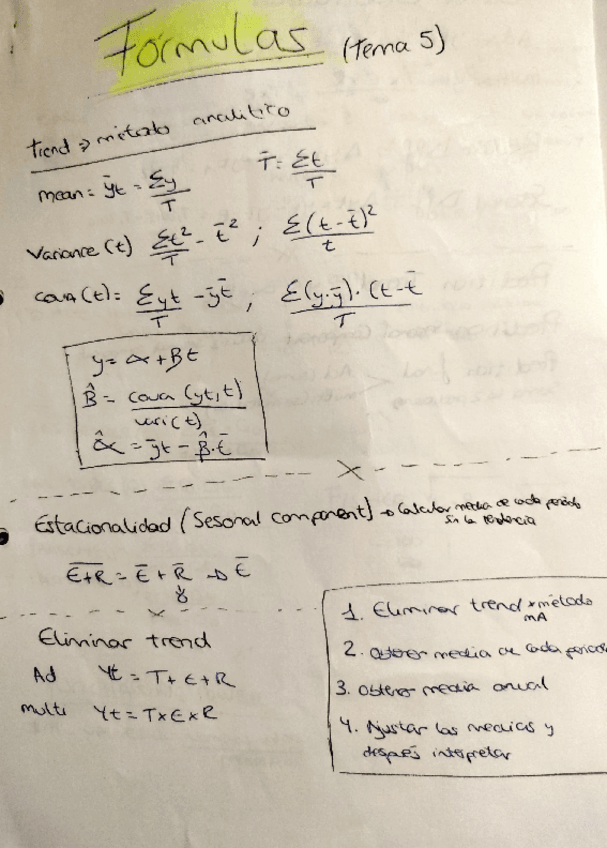 Fórmulas (tema 5)
trend => método analítico
mean = ȳt = Σy/T    T̄ = Σt/T
Variance (t) Σt²/T - t̄² ; Σ(t-t̄)²/t
cova (t) = Σyt/T - ȳt̄ ; Σ(y-ȳ)·(t-t̄/T
y = α + Bt
B̂ = cova (yt,t)/vari(t)
α̂ = ȳt - B̂·t̄
Estacionalidad (Sesonal component) → Calcular media de cada periodo
sin la tendencia
E+R̅ = Ē + R̄ → Ē
Eliminar trend
Ad Yt = T+E+R
multi Yt = TxExR
1. Eliminar trend x método
mA
2. Obtener media de cada periodo
3. Obtener media anual
4. Ajustar las medias y
después interpretar